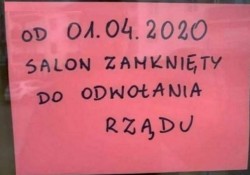 OD 01.04.2020
SALON ZAMKNIĘTY
DO ODWOŁANIA
RZĄDU